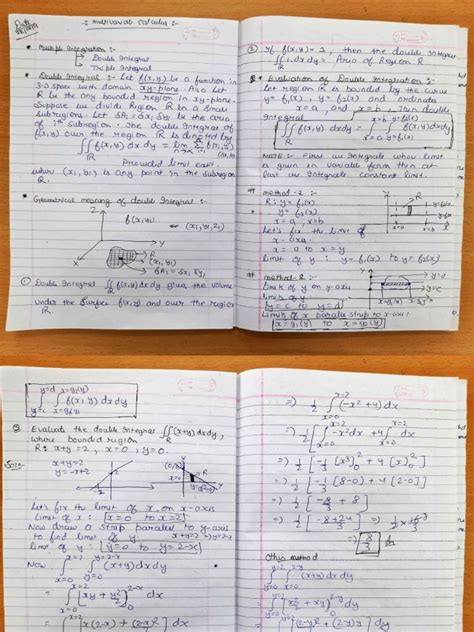 -: multivariable calculus :-
* Multiple Integration :-
Double Integral
Triple Integral
* Double Integral :- Let f(x,y) be a function in
3-D space with domain xy-plane. Also Let
R be the any bounded region in xy-plane.
Suppose we divide Region R in n small
Subregions. Let δAi = δxi δyi be the area
of iᵗʰ subregion. The double Integral of
f(x,y) over the region R is denoted by
∬ f(x,y) dx dy = lim
R
Provided limit exist
where (xi, yi) is any point in the subregion
R.
* Geometrical meaning of double Integral :-
Z
f(x,y)
(x1, y1, z1)
Y
R
(xi, yi)
δAi = δxi δyi
X
① Double Integral ∬ f(x,y) dx dy gives the volume
R
under the surface f(x,y) and over the region
R.
② If f(x,y) = 1, then the double Integral
∬ 1.dx dy = Area of Region R
R
* Evaluation of Double Integration :-
Let region R is bounded by the curve
y = f1(x), y = f2(x) and ordinates
x = a and x = b. Then double
Integral
∬ f(x,y) dx dy = ∫ ∫ f(x,y) dx dy
NOTE :- First we Integrate whose limit
is given in variable form then at
last we Integrate constant limit.
# method-1 :-
R: y = f1(x)
y = f2(x)
x = a, x = b
Let's fix the limit of
x = a to x = b
Limit of y : y = f1(x) to y = f2(x)
# method-2 :-
Limits of y on y-axis
limits of y
y = c to y = d
Limits of x parallel strip to x-axis
x = g1(y) to x = g2(y)
y=d x=g2(y)
∫ ∫ f(x,y) dx dy
y=c x=g1(y)
Q Evaluate the double Integral ∬ (x+y) dx dy,
R
where bounded region
R: x+y=2, x=0, y=0.
Soln-
x+y=2
y=-x+2
R
Let's fix the limit of x, on x-axis
limit of x : x=0 to x=2
Now draw a strip parallel to y-axis
to find limit of y
x+y=2
limit of y : y=0 to y=2-x
Now
x=2 y=2-x
∫ ∫ (x+y) dx dy
x=0 y=0
= ∫ [xy + y²/2] 2-x 0 dx
= ∫ [x(2-x) + (2-x)²/2] dx
⇒ 1/2 ∫ (-x²+4) dx
x=2
x=0
⇒ 1/2 [∫ -x² dx + ∫ 4 dx]
⇒ 1/2 [-1/3 [x³]²₀ + 4[x]²₀]
⇒ 1/2 [-1/3 [8-0] + 4[2-0]]
⇒ 1/2 [-8/3 + 8]
⇒ 1/2 [(-8+24)/3] ⇒ 1/2 × 16/3
⇒ 8/3
Other method
y=2 x=2-y
∫ ∫ (x+y) dx dy
y=0 x=0
= ∫ [x²/2 + xy] 2-y 0 dy